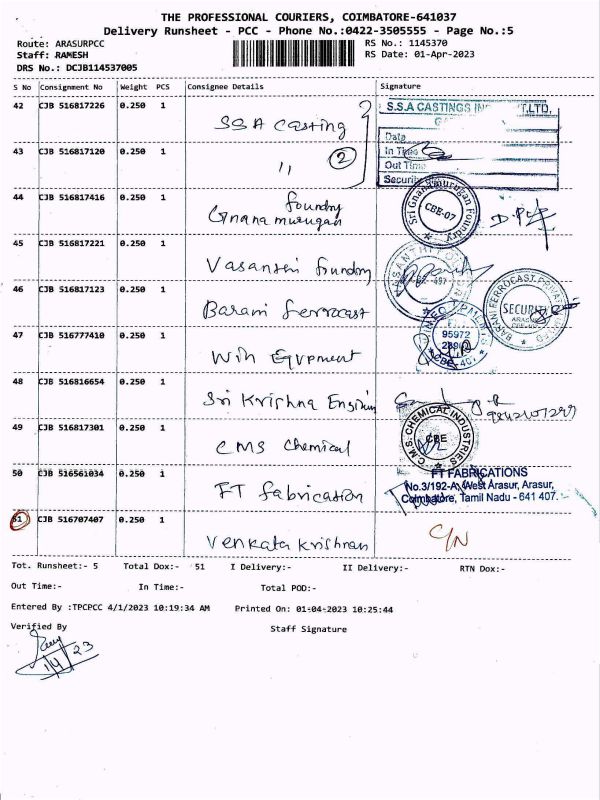 THE PROFESSIONAL COURIERS, COIMBATORE-641037
Delivery Runsheet - PCC - Phone No.:0422-3505555 - Page No.:5
Route: ARASURPCC
RS No.: 1145370
Staff: RAMESH
RS Date: 01-Apr-2023
DRS No.: DCJB114537005
S No Consignment No Weight PCS Consignee Details Signature
42 CJB 516817226 0.250 1 SSA Casting
S.S.A CASTINGS T.LTD.
Date
In Time
Out Time
Security
43 CJB 516817120 0.250 1 〃 2
44 CJB 516817416 0.250 1 Gnana murugan foundry
Sri Gnanamurugan Foundry CBE-07
45 CJB 516817221 0.250 1 Vasanthi foundry
46 CJB 516817123 0.250 1 Barani ferrocast
BARANI FERROCAST SECURITY
47 CJB 516777410 0.250 1 Win Eqvpment
95972
48 CJB 516816654 0.250 1 Sri Krishna Engixin
49 CJB 516817301 0.250 1 CMS chemical
C.M.S. CHEMICAL INDUSTRIES CBE
50 CJB 516561034 0.250 1 FT fabrication
FT FABRICATIONS
No.3/192-A, West Arasur, Arasur,
Coimbatore, Tamil Nadu - 641 407.
51 CJB 516707407 0.250 1 Venkata krishnan C/N
Tot. Runsheet:- 5 Total Dox:- 51 I Delivery:- II Delivery:- RTN Dox:-
Out Time:- In Time:- Total POD:-
Entered By :TPCPCC 4/1/2023 10:19:34 AM Printed On: 01-04-2023 10:25:44
Verified By
Staff Signature
1/4/23